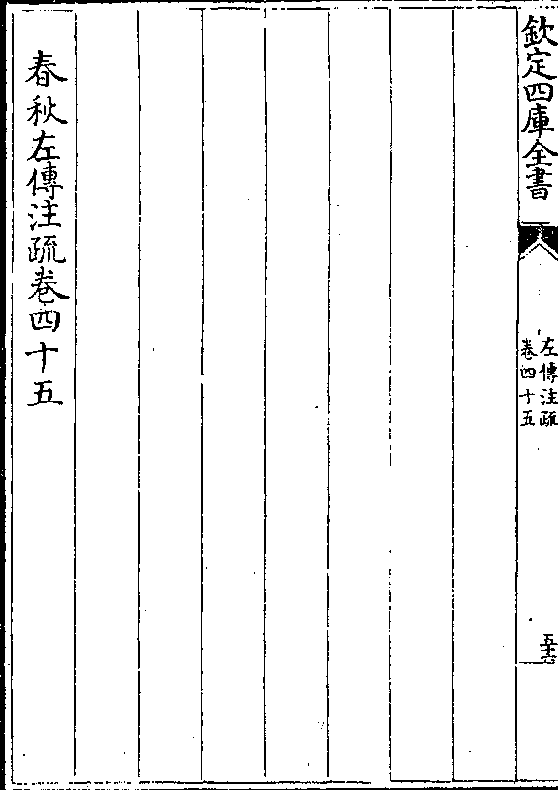 欽定四庫全書
左傳注疏
卷四十五
五十六
春秋左傳注疏卷四十五